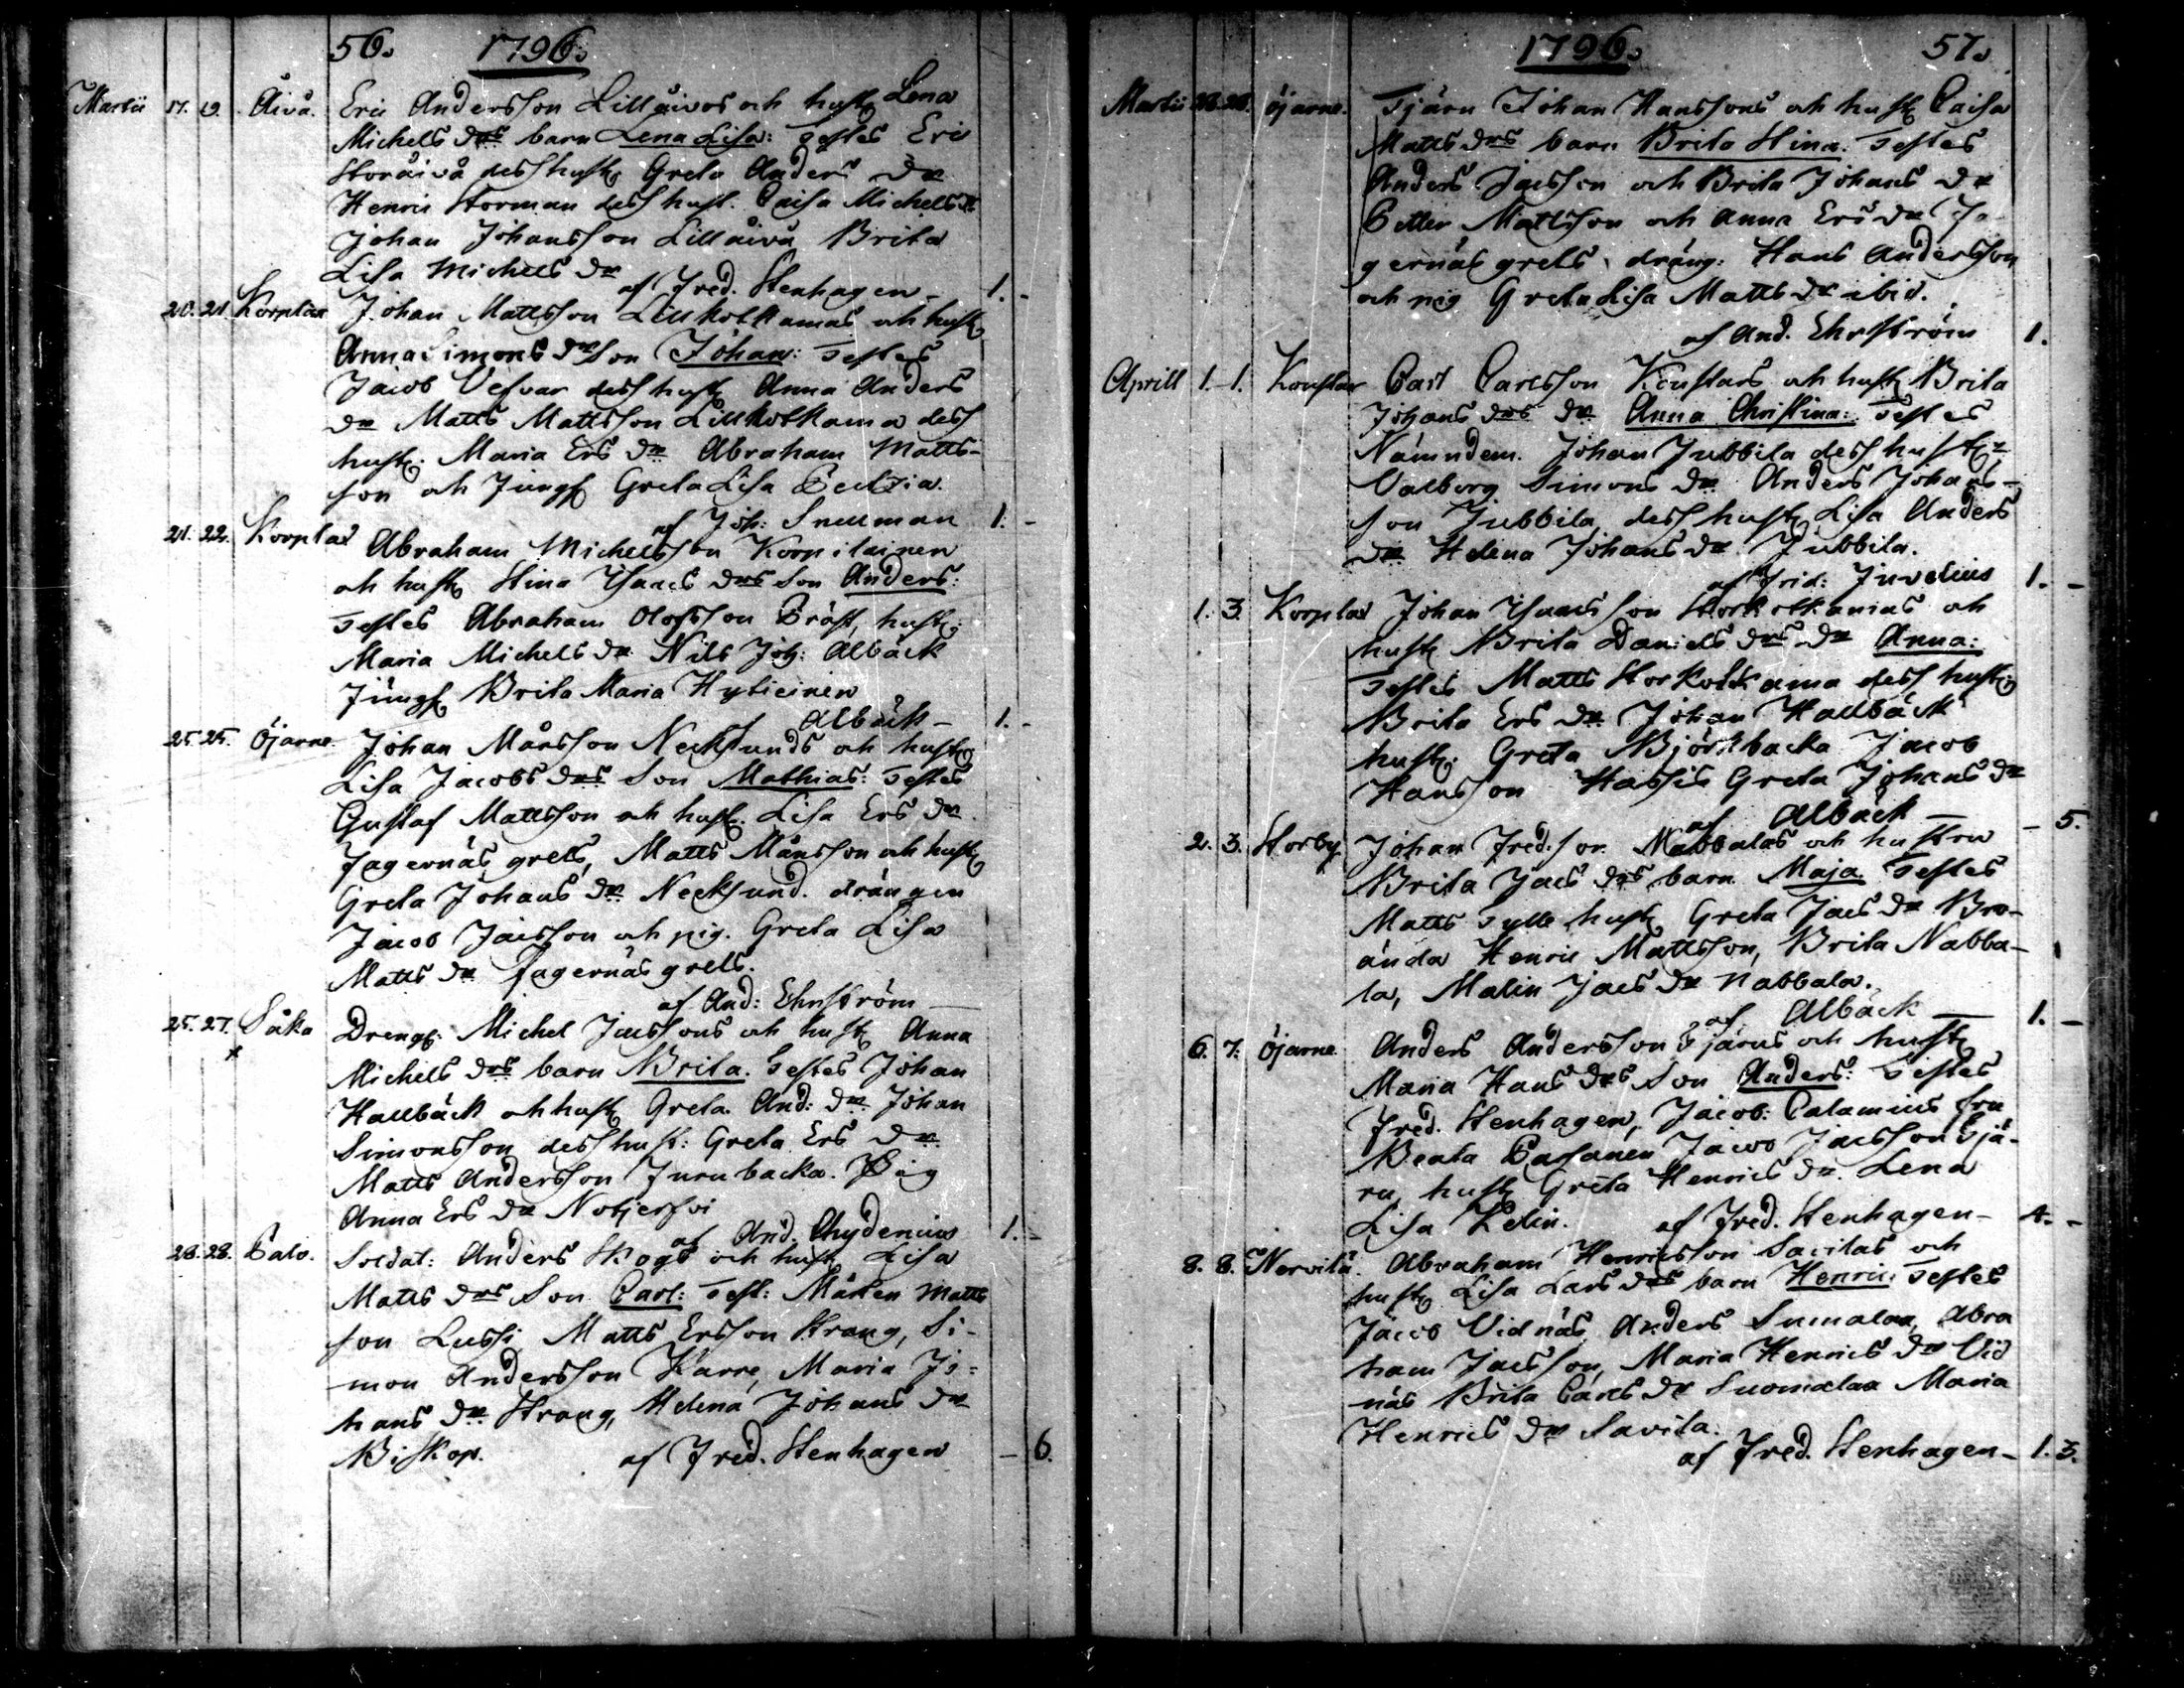 56. 1796.
Martii 17. 19. Åivå. Eric Andersson Lillåivos och hust. Lena
Michels drs barn Lena Lisa: Testes Eric
Storåivå dess hust. Greta Anders dr
Henric Storman dess hust. Caisa Michels dr
Johan Johansson Lillåivå Brita
Lisa Michels dr af Fred. Stenhagen - 1. -
20. 21. Korplax Johan Mattsson Lillkotkamas och hust.
Anna Simons drs Son Johan: Testes
Jacob Vesvar dess hust. Anna Anders
dr Matts Mattsson Lillkotkama dess
hust. Maria Ers dr Abraham Matts-
son och Jungf. Greta Lisa
af Joh: Snellman 1. -
21. 22. Korplax Abraham Michelsson Korpilainen
och hust. Stina Isaacs drs Son Anders:
Testes Abraham Olofsson Präst, hust.
Maria Michels dr Nils Joh: Albäck
Jungf. Brita Maria Hytieinen
Albäck - 1. -
25. 25. Öjarne. Johan Månsson Necksunds och hust.
Lisa Jacobs drs Son Mathias: Testes
Gustaf Mattsson och hust. Lisa Ers dr
Fagernäs grels, Matts Månsson och hust.
Greta Johans dr Necksund. drängen
Jacob Jacsson och pig. Greta Lisa
Matts dr Fagernäs grels.
af And: Ehrström -
25. 27. Såka Dreng. Michel Jacssons och hust. Anna
Michels drs barn Brita. Testes Johan
Hallbäck och hust. Greta And: dr Johan
Simonsson dess hust: Greta Ers dr
Matts Andersson Furubacka. Pig
Anna Ers dr
af And. Chydenius 1. -
28. 28. Palo. Soldat: Anders Skogs och hust. Lisa
Matts drs Son Carl: Test: Mårten Matts
son Lussi Matts Ersson Strang, Si-
mon Andersson Karre, Maria Jo-
hans dr Strang, Helena Johans dr
Biskop. af Fred. Stenhagen - 6.
1796. 57.
Martii 28. 28. Öjarne. Tjäru Johan Hanssons och hust. Caisa
Matts drs barn Brita Stina. Testes
Anders Jacsson och Brita Johans dr
Petter Mattsson och Anna Ers dr Fa-
gernäs grels, dräng: Hans Andersson
och pig Greta Lisa Matts dr ibid.
af And. Ehrström 1.
Aprill 1. 1. Koustar Carl Carlsson Koustars och hust. Brita
Johans drs dr Anna Christina: Testes
Nämndem. Johan Jubbila dess hust.
Valborg Simons dr Anders Johans-
son Jubbila, dess hust. Lisa Anders
dr Helena Johans dr Jubbila.
af Frid: Juvelius 1. -
1. 3. Korplax Johan Isaacsson Storkotkamas och
hust. Brita Daniels drs dr Anna:
Testes Matts Storkotkama dess hust.
Brita Ers dr Johan Hallbäck
hust. Greta Björkbacka Jacob
Hansson Hassis Greta Johans dr
af Albäck - - 5.
2. 3. Storby. Johan Fred.son Nabbalas och hustru
Brita Jacs drs barn Maja Testes
Matts Sylle hust. Greta Jacs dr Bro-
ända Henric Mattsson, Brita Nabba-
la, Malin Jacs dr Nabbala.
af Albäck - 1. -
6. 7. Öjarne. Anders Andersson Tjärus och hust.
Maria Hans drs Son Anders: Testes
Fred. Stenhagen, Jacob: Calamnius fru
Beata Jacob Jacsson Tjä-
ru, hust. Greta Henrics dr Lena
Lisa Zelin. af Fred. Stenhagen - 4. -
8. 8. Nervilä. Abraham Henricsson Savilas och
hust. Lisa Lars drs barn Henric: Testes
Jacob Vidnäs, Anders Sumalax, Abra
ham Jacsson, Maria Henrics dr Vid
näs Brita Carls dr Suomalax Maria
Henrics dr Savila.
af Fred. Stenhagen - 1. 3.